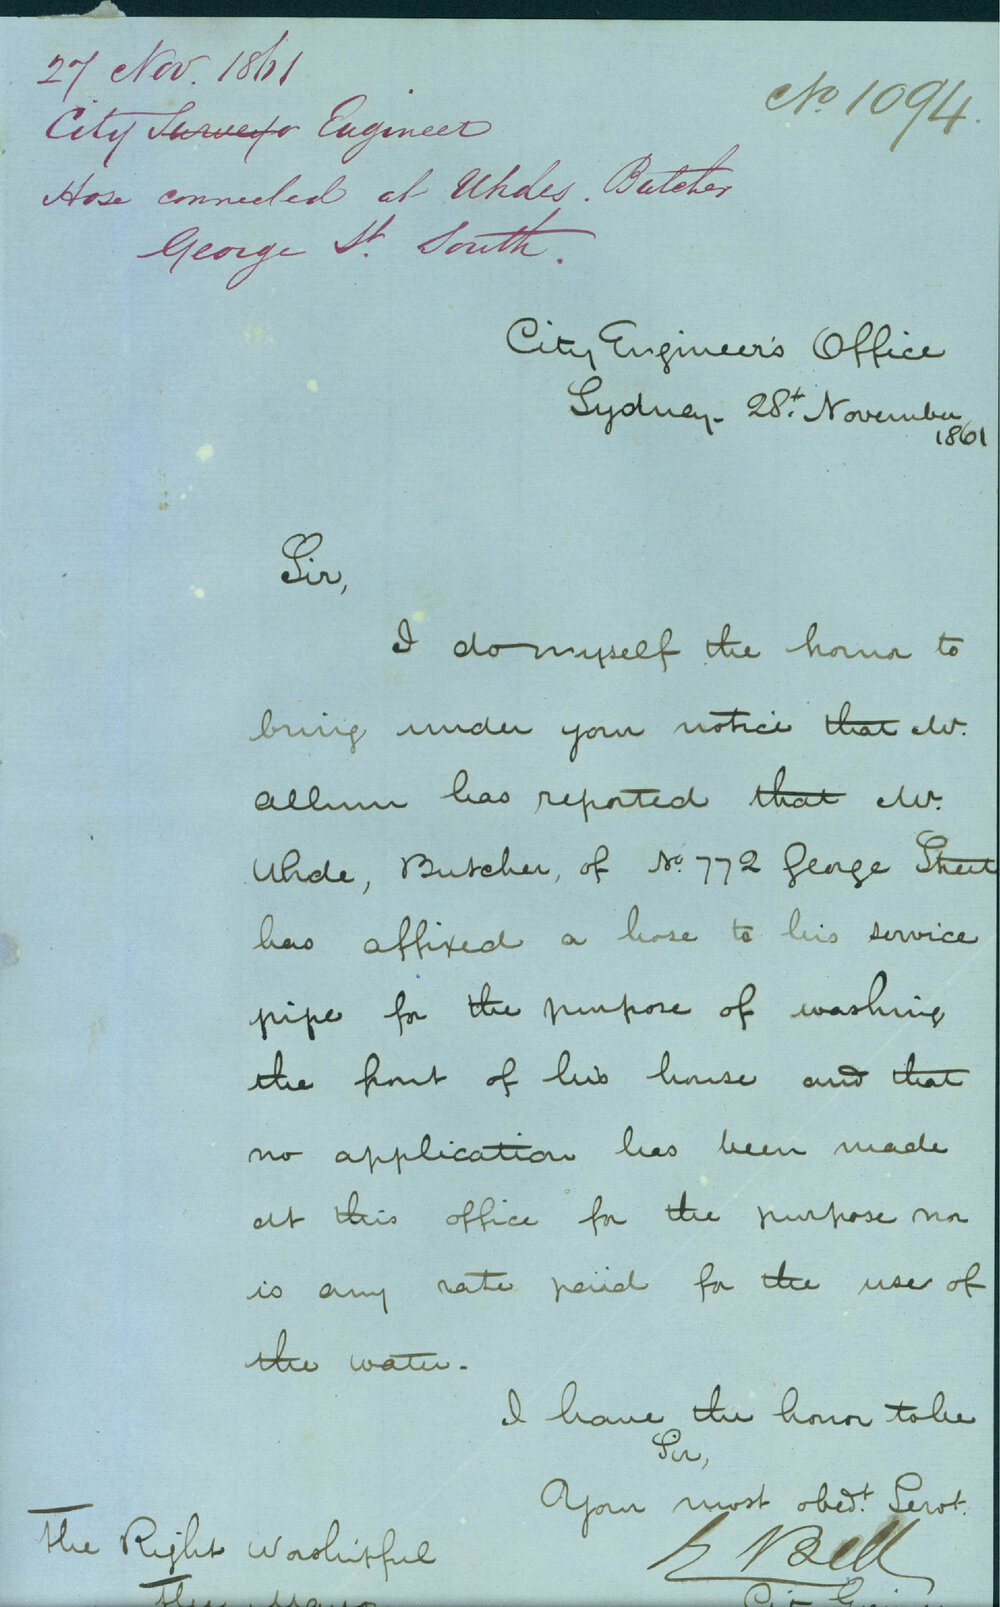 27 Nov. 1861
No 1094.
City Surveyo Engineer
Hose connected at Uhdes. Butcher
George St. South.
City Engineer's Office
Sydney. 28t. November
1861
Sir,
I do myself the honor to
bring under your notice that Mr.
Allum has reported that Mr.
Uhde, Butcher, of No. 772 George Street
has affixed a hose to his service
pipe for the purpose of washing
the front of his house and that
no application has been made
at this office for the purpose nor
is any rate paid for the use of
the water.
I have the honor to be
Sir,
Your most obedt. Servt.
Bell
City Engineer
The Right Worshipful
The Mayor